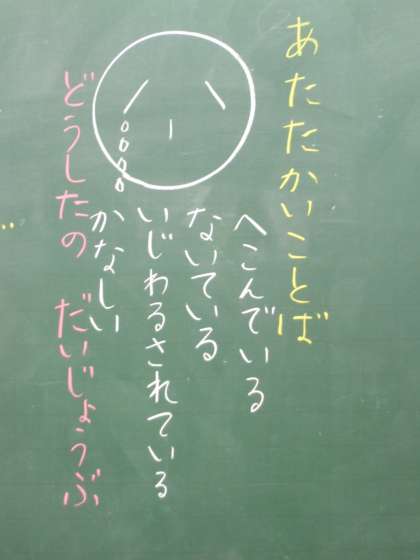 あたたかいことば
へこんでいる
ないている
いじわるされている
かなしい
どうしたの だいじょうぶ